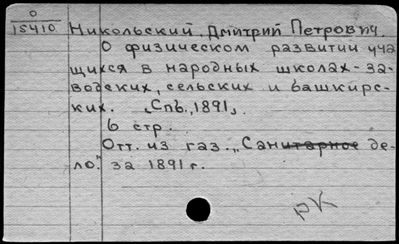 0
15410
Никольский, Дмитрий Петрович.
О физическом развитии уча
щихся в народных школах-за-
водских, сельских и башкирс-
ких. „Спб., 1891„.
6 стр.
Отт. из газ. „Санитарное де-
ло." за 1891 г.
рК